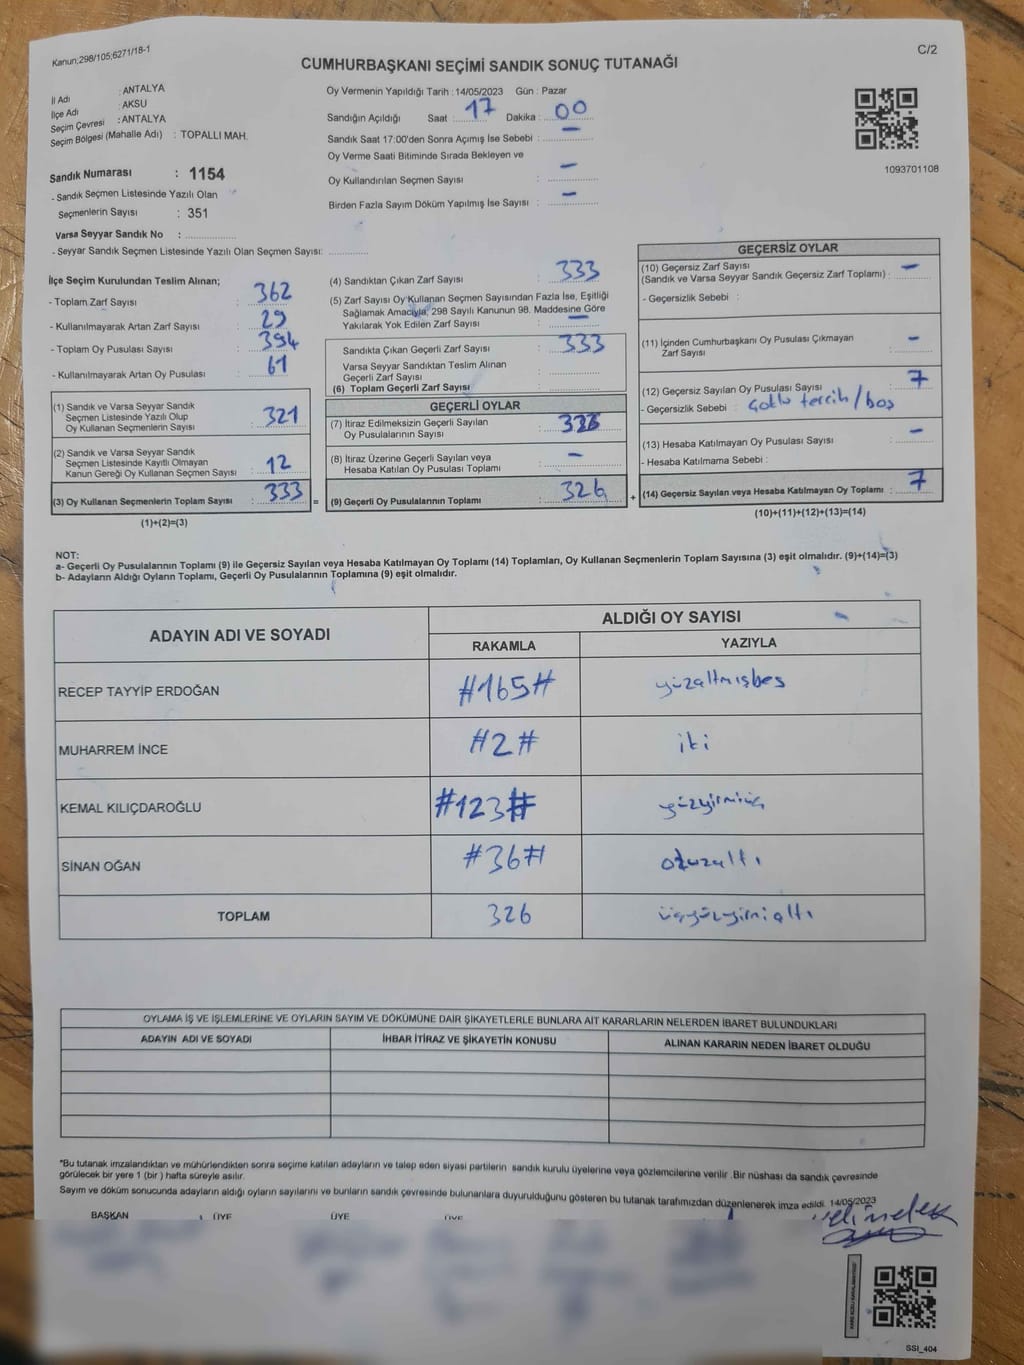 Kanun;298/105;6271/18-1
C/2
CUMHURBAŞKANI SEÇİMİ SANDIK SONUÇ TUTANAĞI
İl Adı : ANTALYA
İlçe Adı : AKSU
Seçim Çevresi : ANTALYA
Seçim Bölgesi (Mahalle Adı) : TOPALLI MAH.
Sandık Numarası : 1154
- Sandık Seçmen Listesinde Yazılı Olan
Seçmenlerin Sayısı : 351
Varsa Seyyar Sandık No :
- Seyyar Sandık Seçmen Listesinde Yazılı Olan Seçmen Sayısı:
Oy Vermenin Yapıldığı Tarih : 14/05/2023 Gün : Pazar
Sandığın Açıldığı Saat : 17 Dakika : 00
Sandık Saat 17:00'den Sonra Açımış İse Sebebi : -
Oy Verme Saati Bitiminde Sırada Bekleyen ve
Oy Kullandırılan Seçmen Sayısı : -
Birden Fazla Sayım Döküm Yapılmış İse Sayısı : -
1093701108
İlçe Seçim Kurulundan Teslim Alınan;
- Toplam Zarf Sayısı : 362
- Kullanılmayarak Artan Zarf Sayısı : 29
- Toplam Oy Pusulası Sayısı : 394
- Kullanılmayarak Artan Oy Pusulası : 61
(1) Sandık ve Varsa Seyyar Sandık
Seçmen Listesinde Yazılı Olup
Oy Kullanan Seçmenlerin Sayısı : 321
(2) Sandık ve Varsa Seyyar Sandık
Seçmen Listesinde Kayıtlı Olmayan
Kanun Gereği Oy Kullanan Seçmen Sayısı : 12
(3) Oy Kullanan Seçmenlerin Toplam Sayısı : 333 =
(1)+(2)=(3)
(4) Sandıktan Çıkan Zarf Sayısı : 333
(5) Zarf Sayısı Oy Kullanan Seçmen Sayısından Fazla İse, Eşitliği
Sağlamak Amacıyla, 298 Sayılı Kanunun 98. Maddesine Göre
Yakılarak Yok Edilen Zarf Sayısı : -
Sandıkta Çıkan Geçerli Zarf Sayısı : 333
Varsa Seyyar Sandıktan Teslim Alınan
Geçerli Zarf Sayısı :
(6) Toplam Geçerli Zarf Sayısı :
GEÇERLİ OYLAR
(7) İtiraz Edilmeksizin Geçerli Sayılan
Oy Pusulalarının Sayısı : 326
(8) İtiraz Üzerine Geçerli Sayılan veya
Hesaba Katılan Oy Pusulası Toplamı : -
(9) Geçerli Oy Pusulalarının Toplamı : 326 +
GEÇERSİZ OYLAR
(10) Geçersiz Zarf Sayısı
(Sandık ve Varsa Seyyar Sandık Geçersiz Zarf Toplamı) : -
- Geçersizlik Sebebi :
(11) İçinden Cumhurbaşkanı Oy Pusulası Çıkmayan
Zarf Sayısı : -
(12) Geçersiz Sayılan Oy Pusulası Sayısı : 7
- Geçersizlik Sebebi : çoklu tercih/boş
(13) Hesaba Katılmayan Oy Pusulası Sayısı : -
- Hesaba Katılmama Sebebi :
(14) Geçersiz Sayılan veya Hesaba Katılmayan Oy Toplamı : 7
(10)+(11)+(12)+(13)=(14)
NOT:
a- Geçerli Oy Pusulalarının Toplamı (9) ile Geçersiz Sayılan veya Hesaba Katılmayan Oy Toplamı (14) Toplamları, Oy Kullanan Seçmenlerin Toplam Sayısına (3) eşit olmalıdır. (9)+(14)=(3)
b- Adayların Aldığı Oyların Toplamı, Geçerli Oy Pusulalarının Toplamına (9) eşit olmalıdır.
ADAYIN ADI VE SOYADI ALDIĞI OY SAYISI
RAKAMLA YAZIYLA
RECEP TAYYİP ERDOĞAN #165# yüzaltmışbeş
MUHARREM İNCE #2# iki
KEMAL KILIÇDAROĞLU #123# yüzyirmiüç
SİNAN OĞAN #36# otuzaltı
TOPLAM 326 üçyüzyirmialtı
OYLAMA İŞ VE İŞLEMLERİNE VE OYLARIN SAYIM VE DÖKÜMÜNE DAİR ŞİKAYETLERLE BUNLARA AİT KARARLARIN NELERDEN İBARET BULUNDUKLARI
ADAYIN ADI VE SOYADI İHBAR İTİRAZ VE ŞİKAYETİN KONUSU ALINAN KARARIN NEDEN İBARET OLDUĞU
*Bu tutanak imzalandıktan ve mühürlendikten sonra seçime katılan adayların ve talep eden siyasi partilerin sandık kurulu üyelerine veya gözlemcilerine verilir. Bir nüshası da sandık çevresinde
görülecek bir yere 1 (bir ) hafta süreyle asılır.
Sayım ve döküm sonucunda adayların aldığı oyların sayılarını ve bunların sandık çevresinde bulunanlara duyurulduğunu gösteren bu tutanak tarafımızdan düzenlenerek imza edildi. 14/05/2023
BAŞKAN ÜYE ÜYE ÜYE
SSI_404